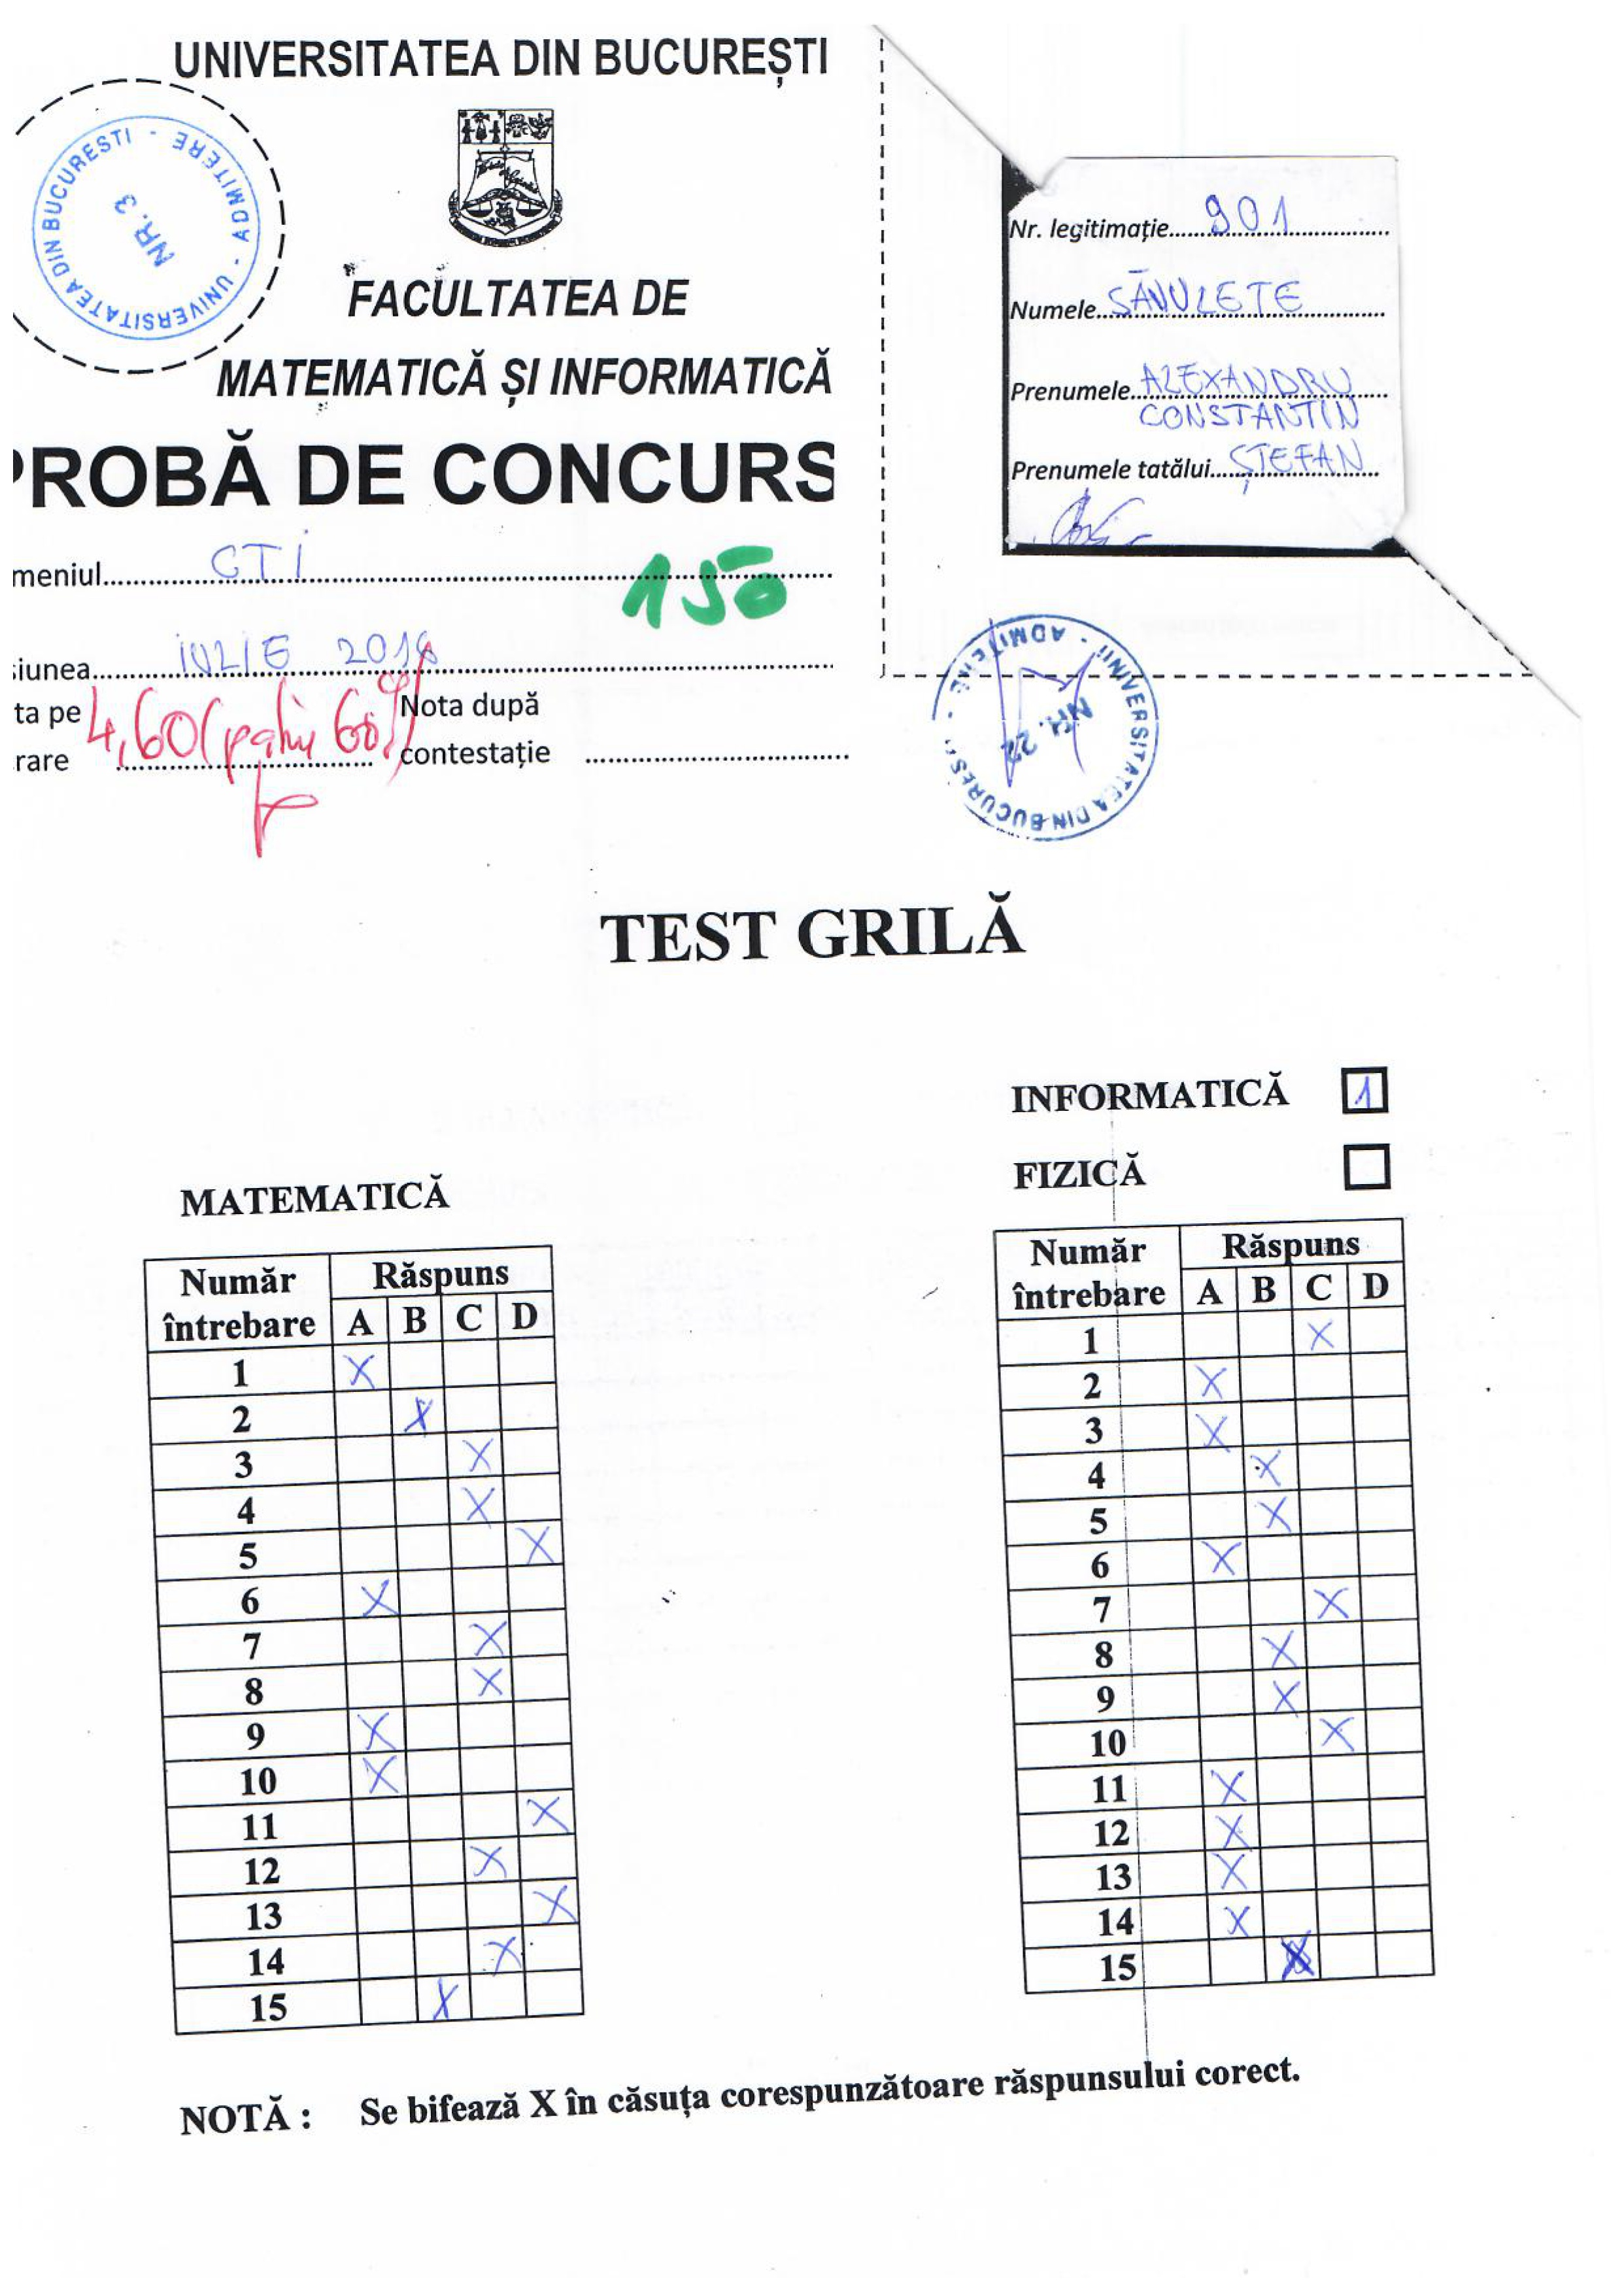 UNIVERSITATEA DIN BUCUREȘTI
UNIVERSITATEA DIN BUCURESTI - ADMITERE -
NR. 3
FACULTATEA DE
MATEMATICĂ ȘI INFORMATICĂ
PROBĂ DE CONCURS
meniul CTI
150
siunea IULIE 2016
ta pe
rare 4,60 (patru 60%)
Nota după
contestație
Nr. legitimație 901
Numele SĂVULETE
Prenumele ALEXANDRU
CONSTANTIN
Prenumele tatălui ȘTEFAN
UNIVERSITATEA DIN BUCURESTI - ADMITERE -
NR. 22
TEST GRILĂ
INFORMATICĂ 1
FIZICĂ
MATEMATICĂ
Număr întrebare Răspuns
A B C D
1 X
2 X
3 X
4 X
5 X
6 X
7 X
8 X
9 X
10 X
11 X
12 X
13 X
14 X
15 X
Număr întrebare Răspuns
A B C D
1 X
2 X
3 X
4 X
5 X
6 X
7 X
8 X
9 X
10 X
11 X
12 X
13 X
14 X
15 X
NOTĂ : Se bifează X în căsuța corespunzătoare răspunsului corect.